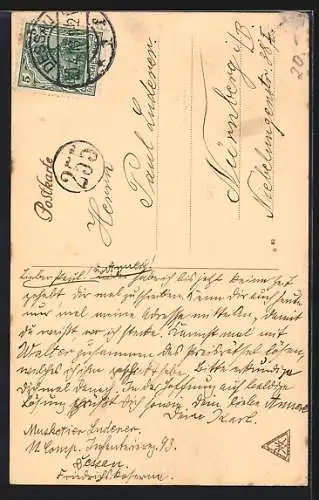 DESSAU
5
20.-
Postkarte
255
Herrn
Paul Luderer.
Nürnberg i/B.
Nibelungenstr.
Lieber Paul!
habe ich bis jetzt keine Zeit
gehabt dir mal zu schreiben. Kann dir auch heute
nur mal meine Adresse mitteilen, damit
du weißt wo ich stecke. Kannst mal mit
Walter zusammen das Preisrätsel lösen,
welches ich
Dich mal danach. In der Hoffnung auf baldige
Lösung grüßt Dich
Dein Karl.
Musketier Luderer
11 Comp. Infanteriereg. 93.
Dessau.
Friedrichskaserne.